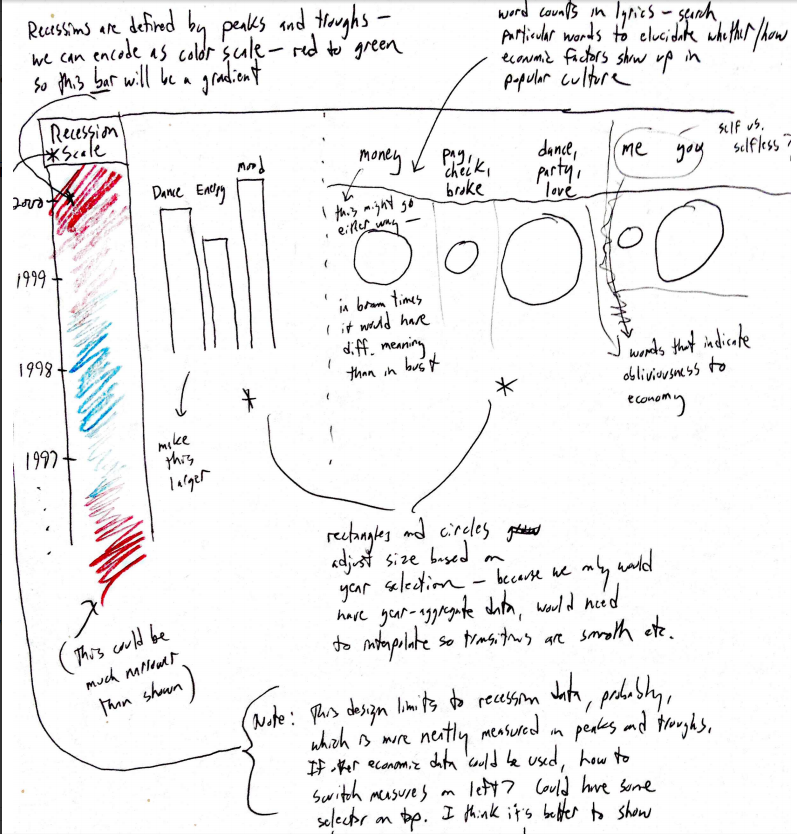 Recessions are defined by peaks and troughs —
we can encode as color scale — red to green
so this bar will be a gradient
word counts in lyrics — search
particular words to elucidate whether/how
economic factors show up in
popular culture
Recession
* Scale
2000
1999
1998
1997
Dance
Energy
Mood
make
this
larger
*
money
this might go
either way —
in boom times
it would have
diff. meaning
than in bust
pay,
check,
broke
dance,
party,
love
*
me you
self vs.
selfless?
words that indicate
obliviousness to
economy
rectangles and circles
adjust size based on
year selection — because we only would
have year-aggregate data, would need
to interpolate so transitions are smooth etc.
(This could be
much narrower
than shown)
Note: This design limits to recession data, probably,
which is more neatly measured in peaks and troughs.
If other economic data could be used, how to
switch measures on left? Could have some
selector on top. I think it's better to show